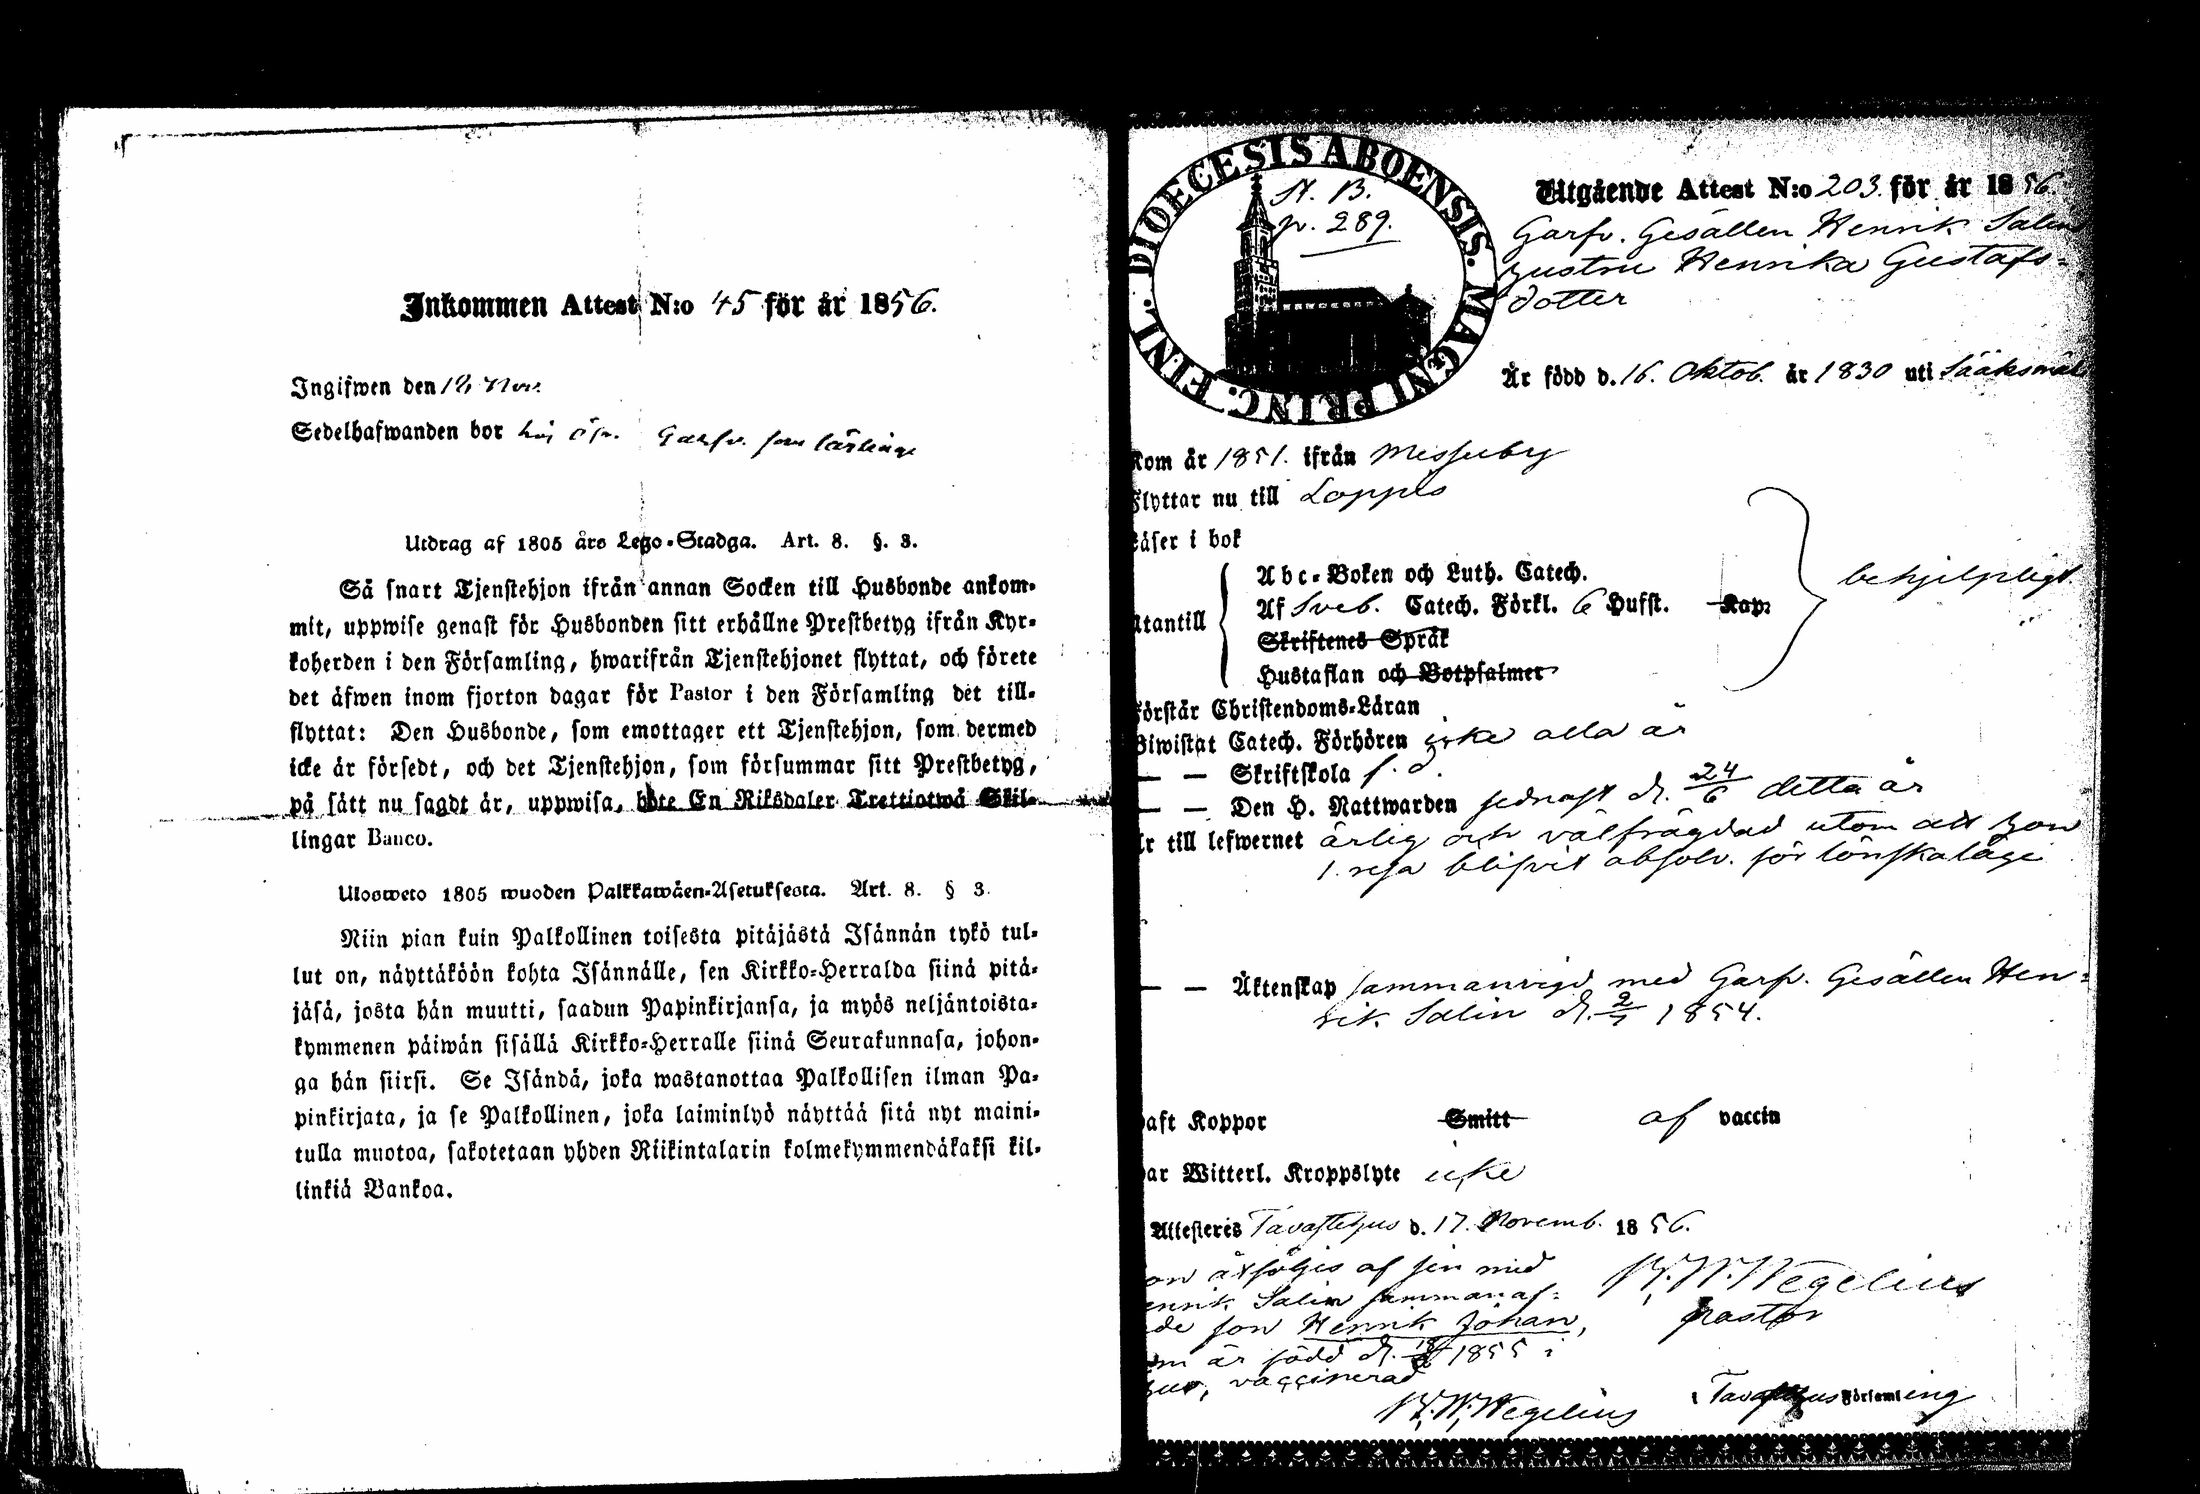 Inkommen Attest N:o 45 för år 1856.
Ingifwen den 18 Nov.
Sedelhafwanden bor hos
Utdrag af 1805 års Lego-Stadga. Art. 8. §. 3.
Så snart Tjenstehjon ifrån annan Socken till Husbonde ankom-
mit, uppwise genast för Husbonden sitt erhållne Prestbetyg ifrån Kyr-
koherden i den Församling, hwarifrån Tjenstehjonet flyttat, och förete
det äfwen inom fjorton dagar för Pastor i den Församling det till-
flyttat: Den Husbonde, som emottager ett Tjenstehjon, som dermed
icke är försedt, och det Tjenstehjon, som försummar sitt Prestbetyg,
på sätt nu sagdt är, uppwisa, böte En Riksdaler Trettiotwå Skil-
lingar Banco.
Ulosweto 1805 wuoden Palkkawäen-Asetuksesta. Art. 8. § 3.
Niin pian kuin Palkollinen toisesta pitäjästä Isännän tykö tul-
lut on, näyttäköön kohta Isännälle, sen Kirkko-Herralda siinä pitä-
jäsä, josta hän muutti, saadun Papinkirjansa, ja myös neljäntoista-
kymmenen päiwän sisällä Kirkko-Herralle siinä Seurakunnasa, johon-
ga hän siirsi. Se Isändä, joka wastanottaa Palkollisen ilman Pa-
pinkirjata, ja se Palkollinen, joka laiminlyö näyttää sitä nyt maini-
tulla muotoa, sakotetaan yhden Riikintalarin kolmekymmendäkaksi kil-
linkiä Bankoa.
DIOECESIS ABOENSIS. MAGNI PRINC. FINL.
St. B.
p. 289.
Utgående Attest N:o 203 för år 1856.
Garfv. Gesällen Henrik Salins
hustru Henrika Gustafs-
dotter
Är född d. 16. Oktob. år 1830 uti Sääksmäki
Kom år 1851. ifrån Messuby
Flyttar nu till Loppis
Läser i bok
Utantill
Abc-Boken och Luth. Catech.
Af Sveb. Catech. Förkl. 6 Hufst. Kap.
Skriftenes Språk
Hustaflan och Botpsalmer
behjelpligt.
Förstår Christendoms-Läran
Biwistat Catech. Förhören icke alla år
— — Skriftskola f. d.
— — Den H. Nattwarden sednast d. 24/6 detta år
Är till lefwernet ärlig och välfrägdad utom att hon
1. resa blifvit absolv. för lönskaläge
— — Äktenskap sammanvigd med Garfv. Gesällen Hen-
rik Salin d. 2/7 1854.
Haft Koppor Smitt af vaccin
Har Witterl. Kroppslyte icke
Attesteres Tavastehus d. 17. Novemb. 1856.
on åtföljes af sin med
enrik Salin sammanaf-
de son Henrik Johan,
m är född d. 1855 i
hus, vaccinerad
K. W. Wegelius
pastor
K. W. Wegelius
i Tavastehus Församling